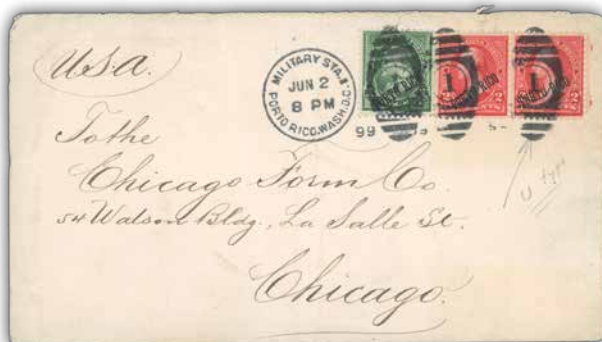 U.S.A.
MILITARY STA. 1
JUN 2
8 PM
PORTO RICO. WASH. D.C.
99
1
1
PORTO RICO
2
2
To the
Chicago Form Co.
54 Watson Bldg., La Salle St.
Chicago.
U type